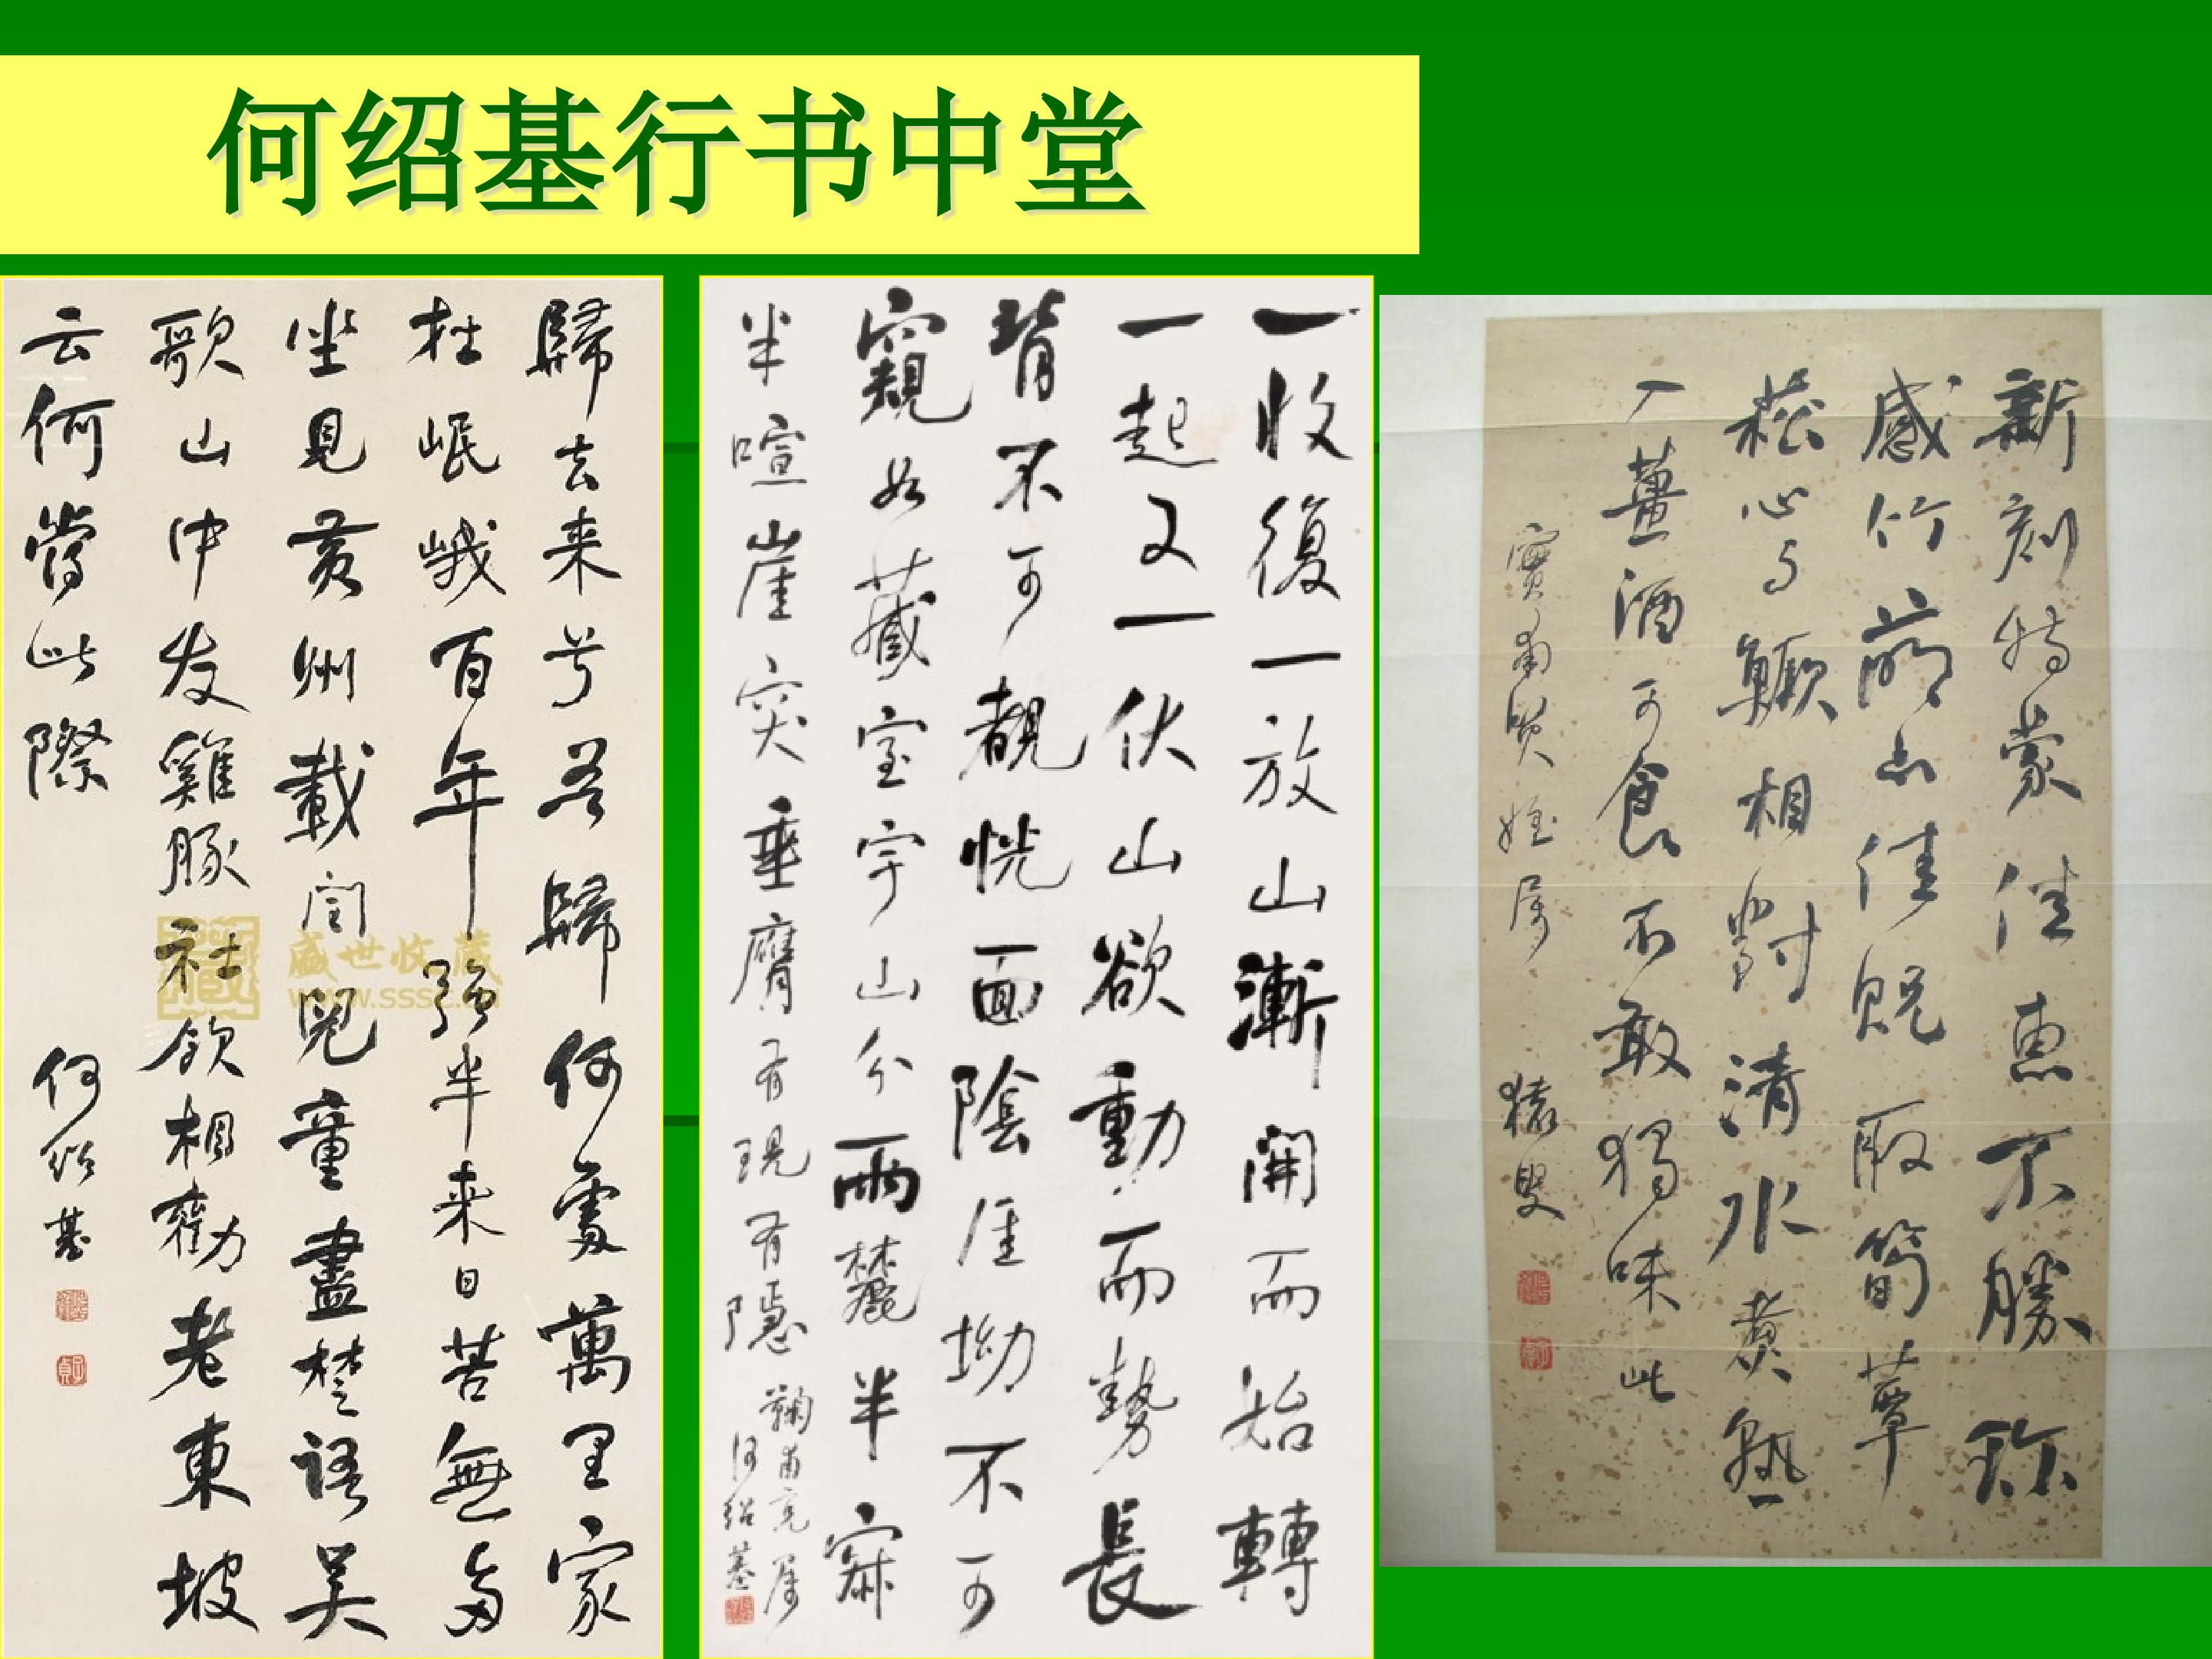 何绍基行书中堂
歸去来兮吾歸何處萬里家
在岷峨百年強半来日苦無多
坐見黃州載閏兒童盡楚語吳
歌山中友雞豚社飲相勸老東坡
云何當此際
何紹基
盛世收藏
www.sssc.cn
一收復一放山漸開而始轉
一起又一伏山欲動而勢長
背不可覩恍面陰厓坳不可
窺如藏室宇山分兩麓半寂
半喧崖突垂膺有現有隱
何紹基
新刻特蒙佳惠不勝珍
感竹萌亦佳貺取筍蕈
菘心与鱖相對清水煮熟一
入薑酒可食不敢獨味此
寶甫賢姪属 猿叟